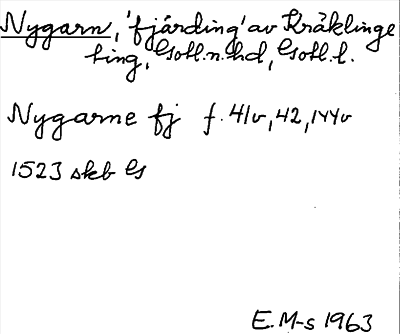 Nygarn, 'fjärding' av Kräklinge
ting, Gotl.n.hd, Gotl.l.
Nygarne fj f. 41v, 42, 144v
1523 skb G
E.M-s 1963